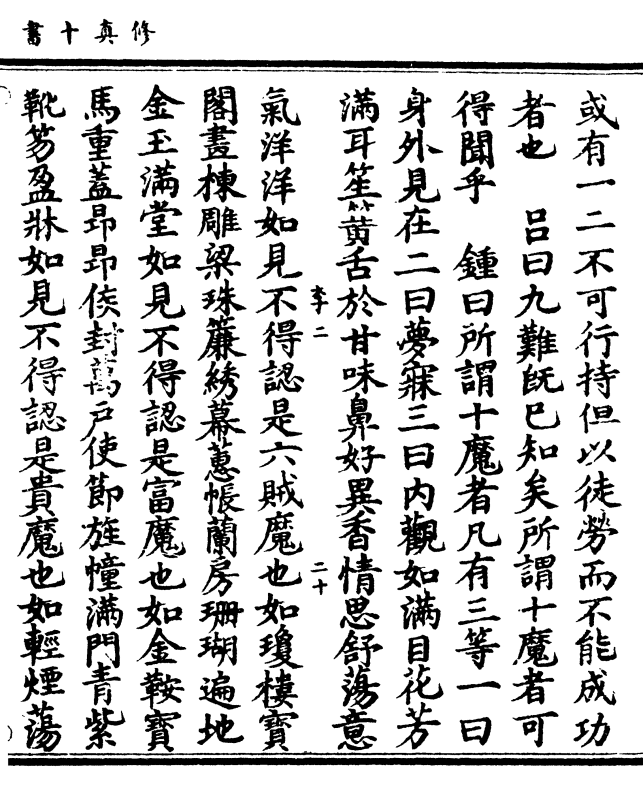 修真十書
或有一二不可行持但以徒勞而不能成功
者也　呂曰九難既已知矣所謂十魔者可
得聞乎　鍾曰所謂十魔者凡有三等一曰
身外見在二曰夢寐三曰内觀如滿目花芳
滿耳笙簧舌於甘味鼻好異香情思舒蕩意
李二　二十
氣洋洋如見不得認是六賊魔也如瓊樓寶
閣畫棟雕梁珠簾綉幕蕙帳蘭房珊瑚遍地
金玉滿堂如見不得認是富魔也如金鞍寶
馬重蓋昂昂侯封萬户使節旌幢滿門青紫
靴笏盈牀如見不得認是貴魔也如輕煙蕩